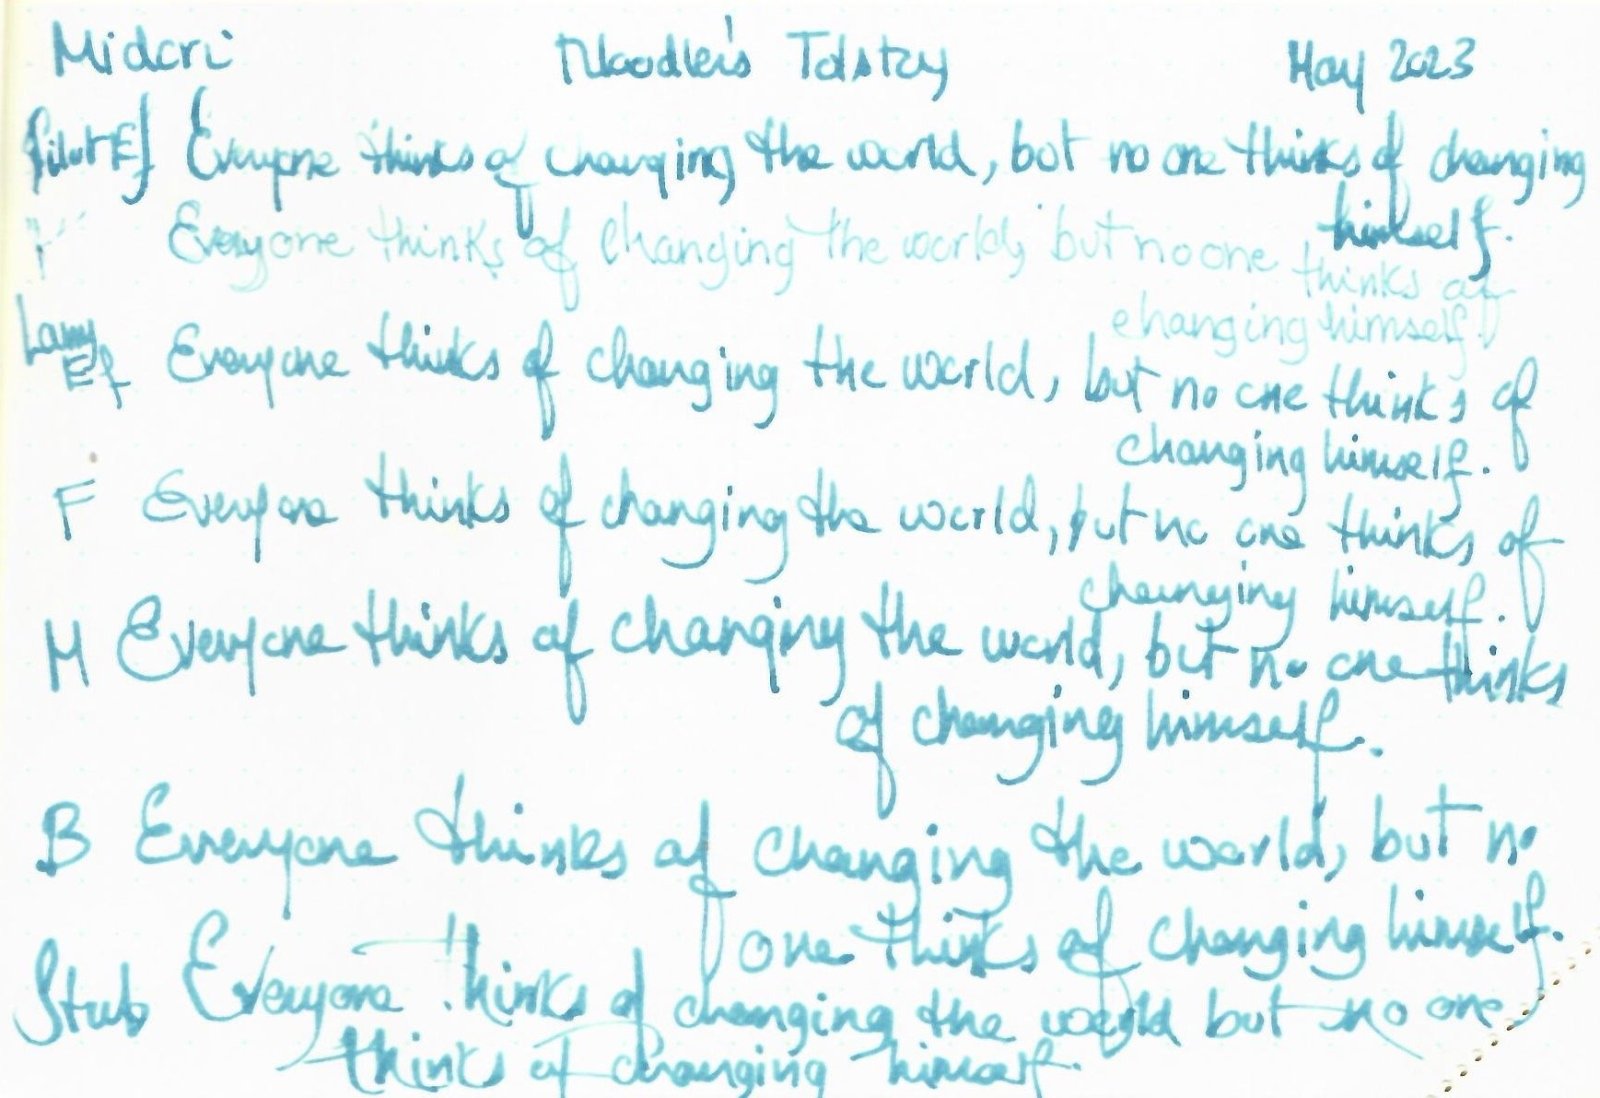 Midori Noodler's Tolstoy May 2023
Pilot Ef Everyone thinks of changing the world, but no one thinks of changing
himself.
F Everyone thinks of changing the world, but no one thinks of
changing himself.
Lamy Ef Everyone thinks of changing the world, but no one thinks of
changing himself.
F Everyone thinks of changing the world, but no one thinks of
changing himself.
M Everyone thinks of changing the world, but no one thinks
of changing himself.
B Everyone thinks of changing the world, but no
one thinks of changing himself.
Stub Everyone thinks of changing the world but no one
thinks of changing himself.